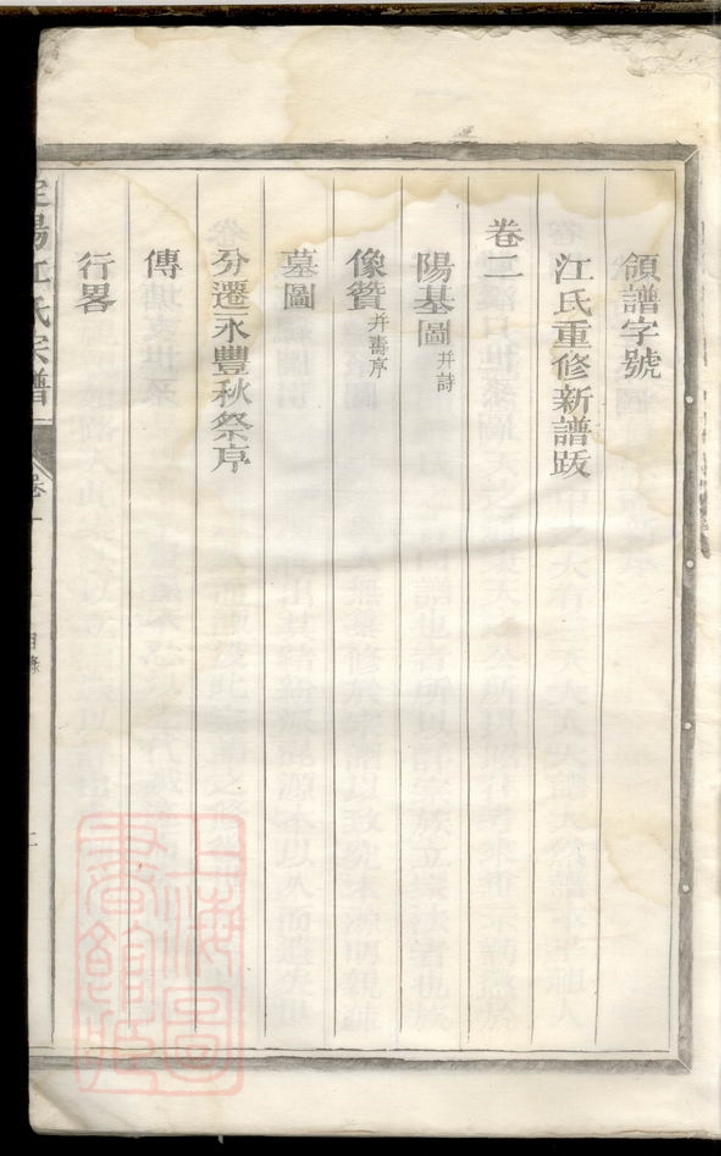 領譜字號
江氏重修新譜跋
卷二
陽基圖并詩
像贊并壽序
墓圖
分遷永豐秋祭序
傳
行畧
定陽江氏宗譜
卷一
目錄
二
上海圖書館藏